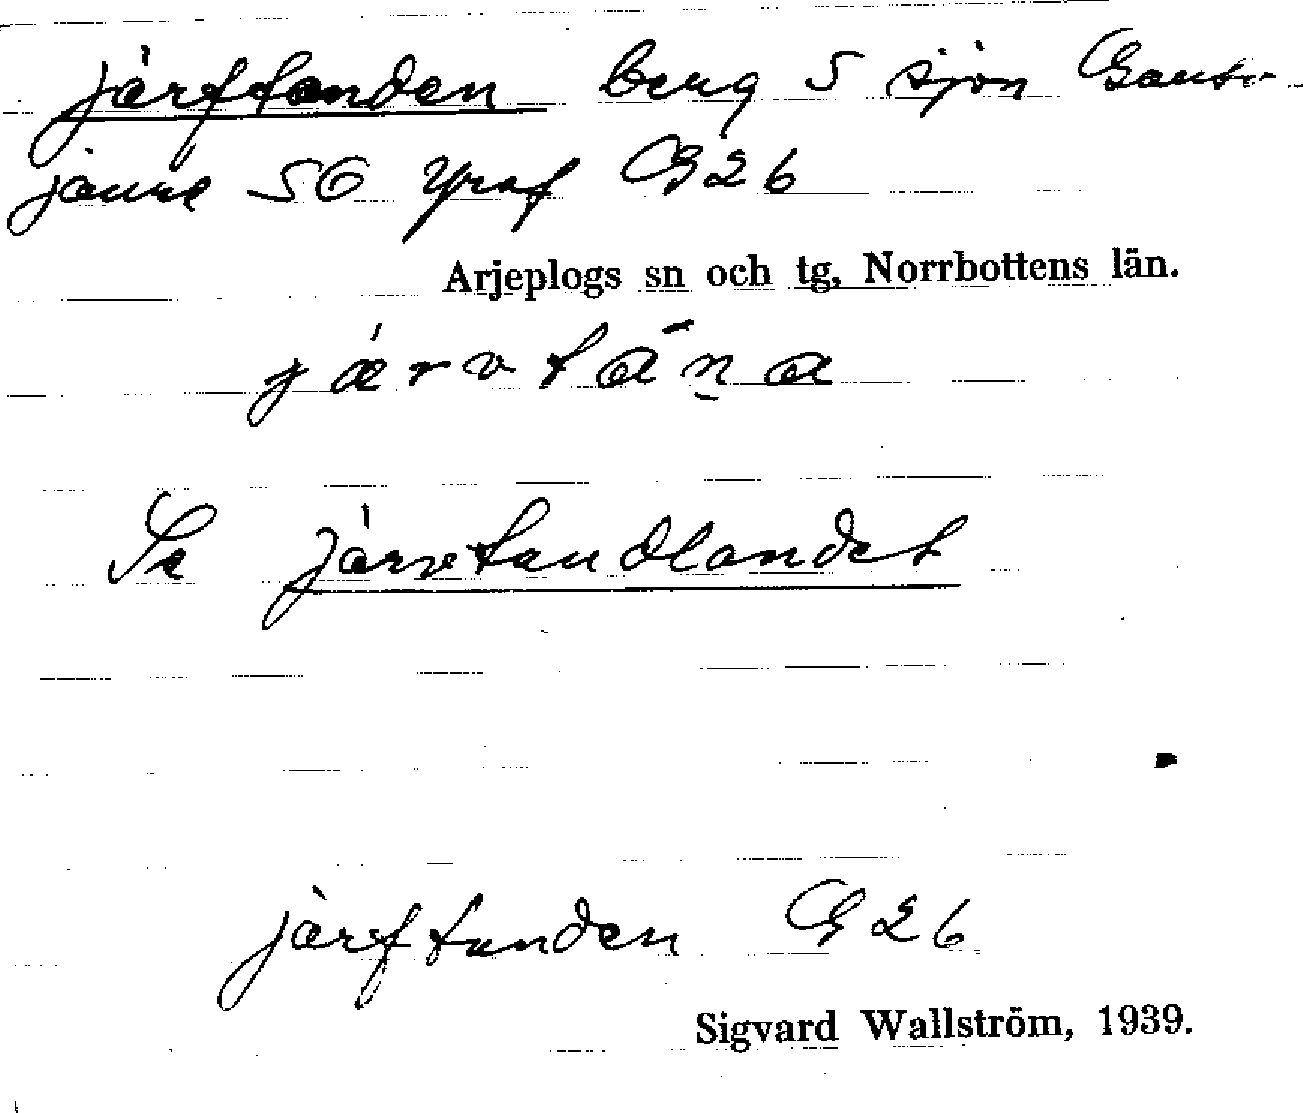 järftanden berg S sjön Gauto
jaure SO graf G 26
Arjeplogs sn och tg, Norrbottens län.
järvtāṇa
Se järvtandlandet
järftanden G 26
Sigvard Wallström, 1939.